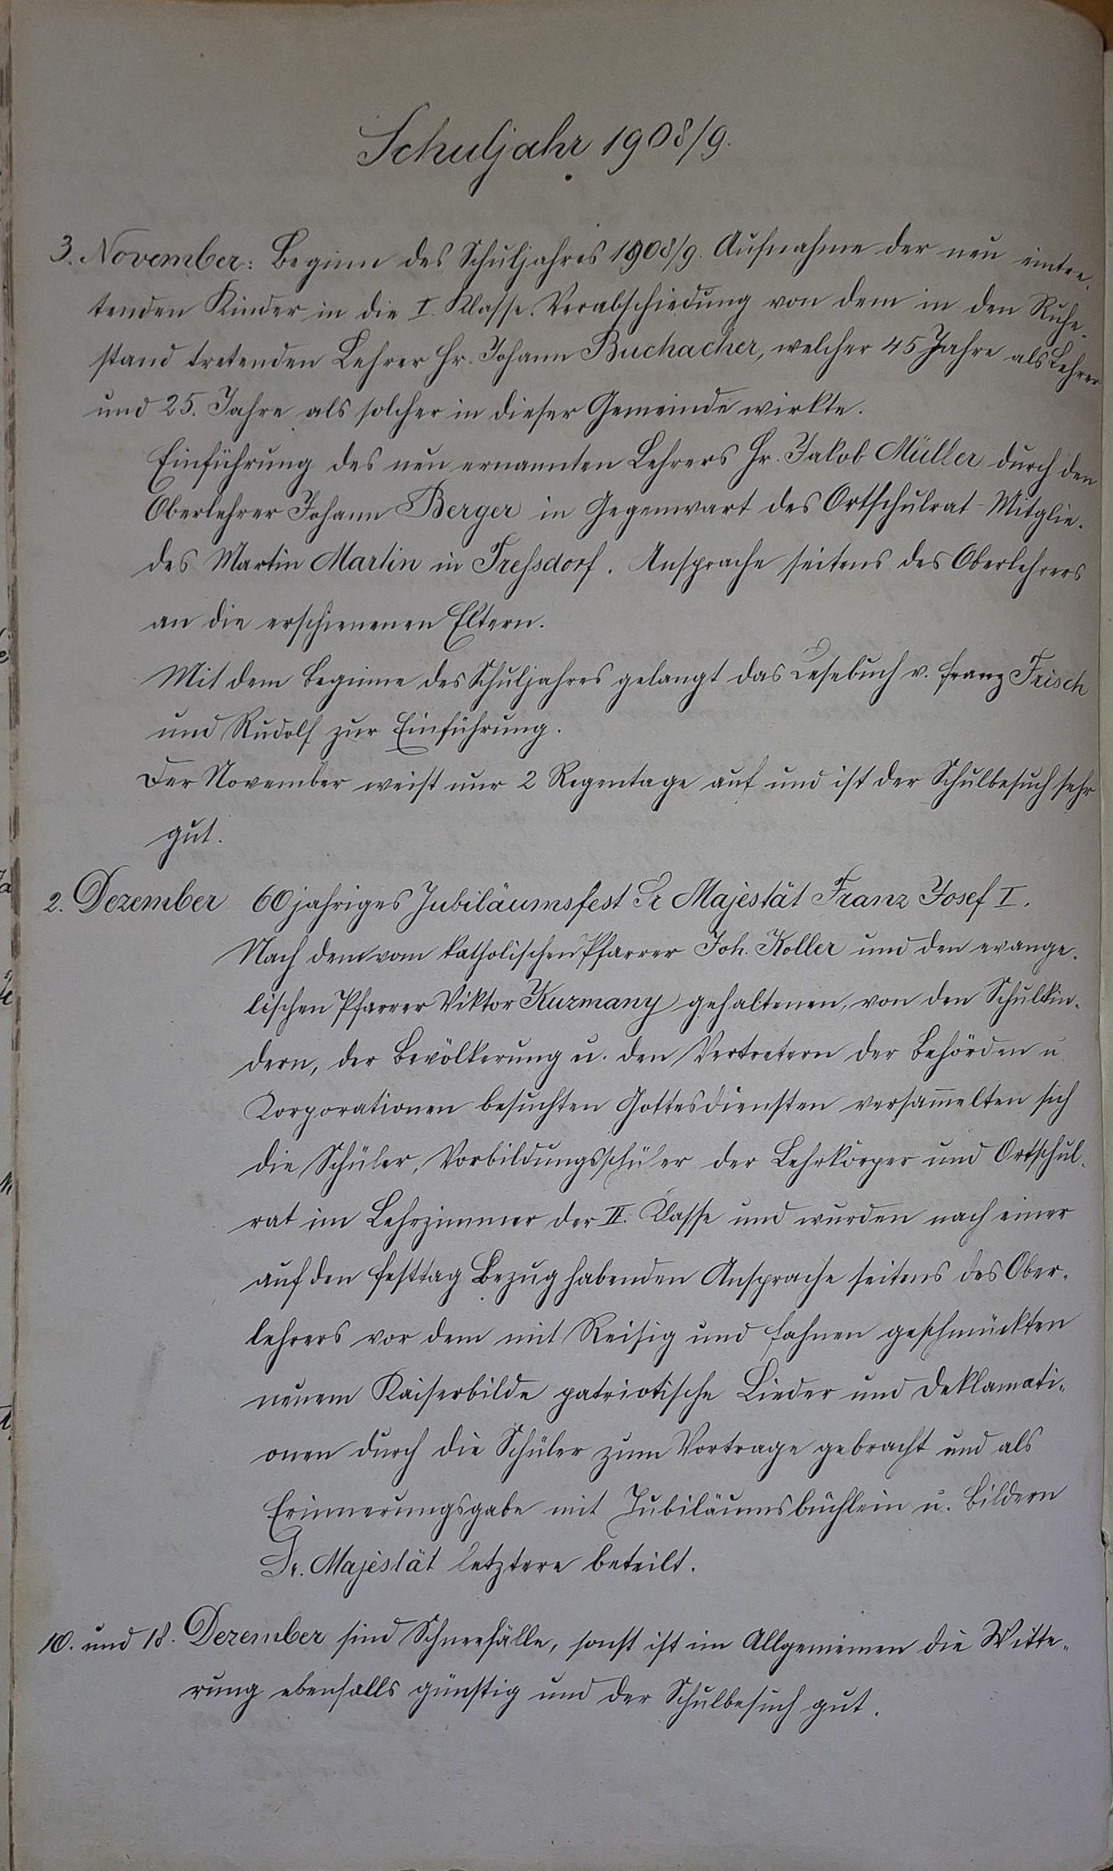 Schuljahr 1908/9.
3. November: Beginn des Schuljahres 1908/9. Aufnahme der neu eintre-
tenden Kinder in die I. Klasse. Verabschiedung von dem in den Ruhe-
stand tretenden Lehrer Hr. Johann Buchacher, welcher 45 Jahre als Lehrer
und 25. Jahre als solcher in dieser Gemeinde wirkte.
Einführung des neu ernannten Lehrers Hr. Jakob Müller durch den
Oberlehrer Johann Berger in Gegenwart des Ortschulrat-Mitglie-
des Martin Martin in Tressdorf. Ansprache seitens des Oberlehrers
an die erschienenen Eltern.
Mit dem Beginne des Schuljahres gelangt das Lesebuch v. Franz Frisch
und Rudolf zur Einführung.
Der November weist nur 2 Regentage auf und ist der Schulbesuch sehr
gut.
2. Dezember 60 jahriges Jubiläumsfest Sr Majestät Franz Josef I.
Nach dem vom katholischen Pfarrer Joh. Koller und den evange-
lischen Pfarrer Viktor Kuzmany gehaltenen, von den Schulkin-
dern, der Bevölkerung u. den Vertretern der Behörden u
Korporationen besuchten Gottesdiensten versam̅elten sich
die Schüler, Vorbildungsschüler der Lehrkörper und Ortschul-
rat im Lehrzimmer der II. Klasse und wurden nach einer
auf den Festtag Bezug habenden Ansprache seitens des Ober-
lehrers vor dem mit Reisig und Fahnen geschmückten
neuem Kaiserbilde patriotische Lieder und Deklamati-
onen durch die Schüler zum Vortrage gebracht und als
Erinnerungsgabe mit Jubiläumsbüchlein u. Bildern
Sr. Majestät letztere beteilt.
10. und 18. Dezember sind Schneefälle, sonst ist im Allgemeinen die Witte-
rung ebenfalls günstig und der Schulbesuch gut.